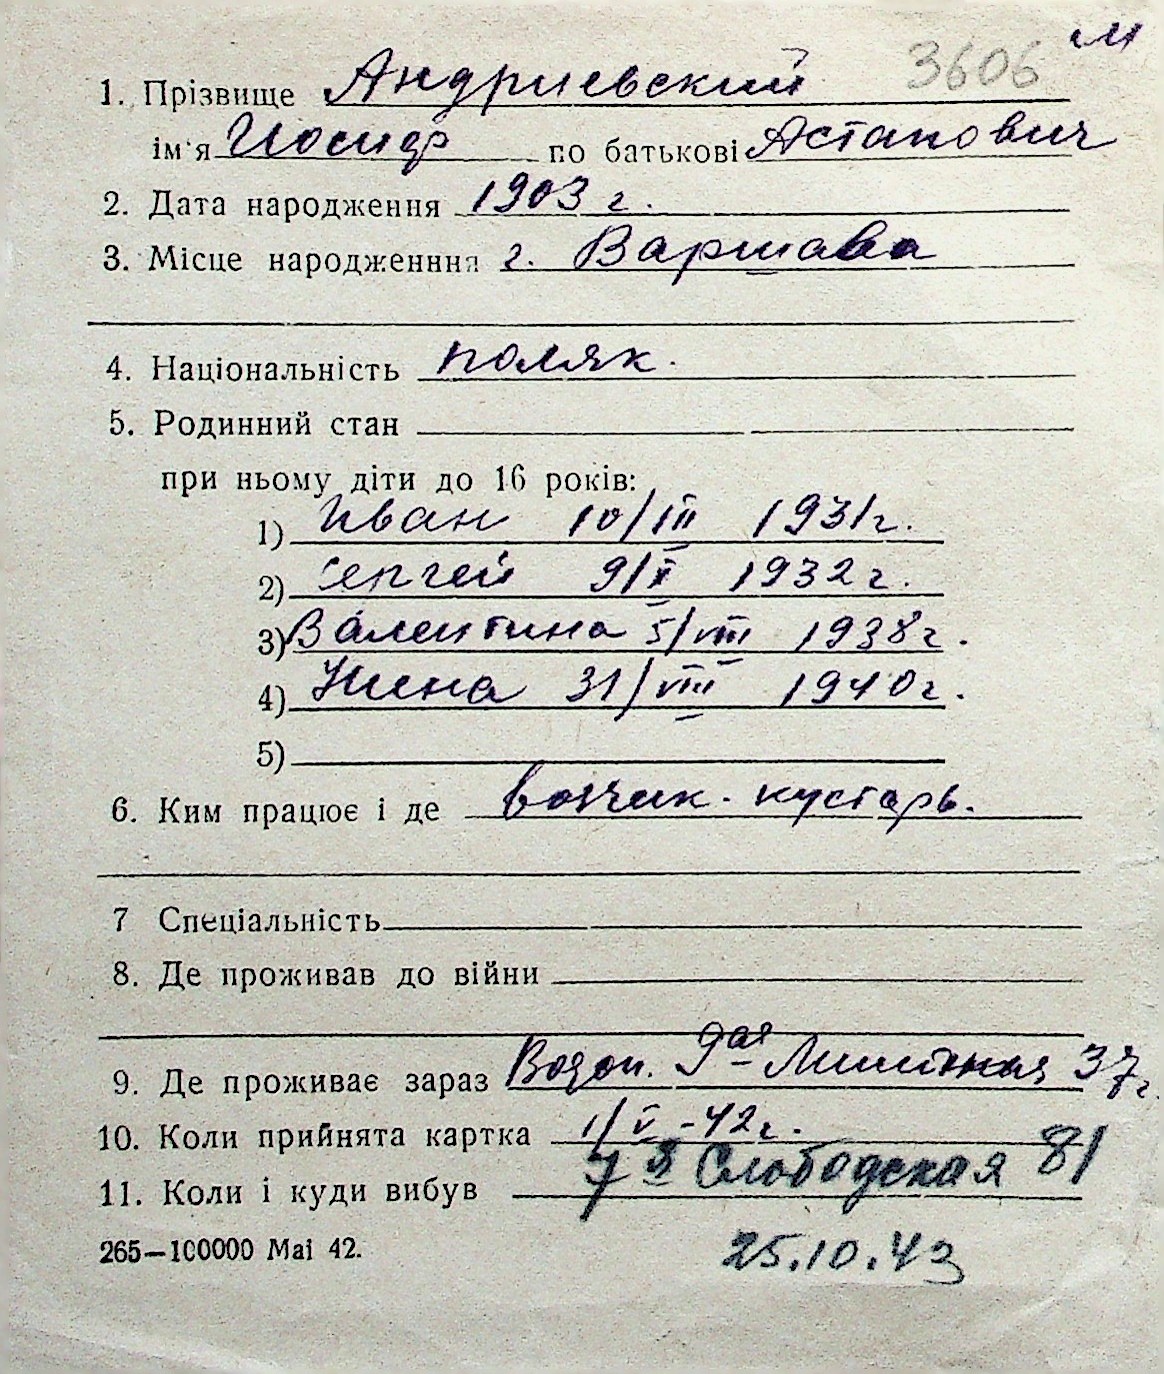 3606 м
1. Прізвище Андриевский
ім'я Иосиф по батькові Астапович
2. Дата народження 1903 г.
3. Місце народженння г. Варшава
4. Національність поляк.
5. Родинний стан
при ньому діти до 16 років:
1) Иван 10/III 1931г.
2) Сергей 9/X 1932 г.
3) Валентина 5/VIII 1938г.
4) Нина 31/VIII 1940г.
5)
6. Ким працює і де возчик. кустарь.
7 Спеціальність
8. Де проживав до війни
9. Де проживає зараз Водоп. 9ая 37г.
10. Коли прийнята картка 1/V -42г.
11. Коли і куди вибув 7я Слободская 81
265—100000 Mai 42. 25.10.43